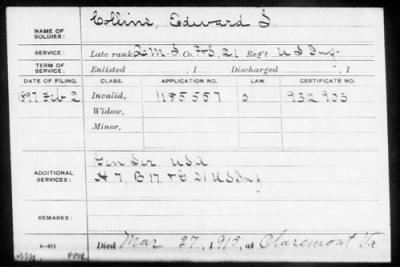 NAME OF SOLDIER: Collins, Edward S.
SERVICE: Late rank Q M S Co. F & S, 21 Reg't U S Inf.
TERM OF SERVICE: Enlisted , 1 Discharged , 1
DATE OF FILING. CLASS. APPLICATION NO. LAW. CERTIFICATE NO.
1897 Feb 2 Invalid, 1185557 932,933
Widow,
Minor,
ADDITIONAL SERVICES: Gen Ser. USA
H 7, B 17 & G 21 U S Inf
REMARKS:
Died Mar 27, 1915, at Claremont Va